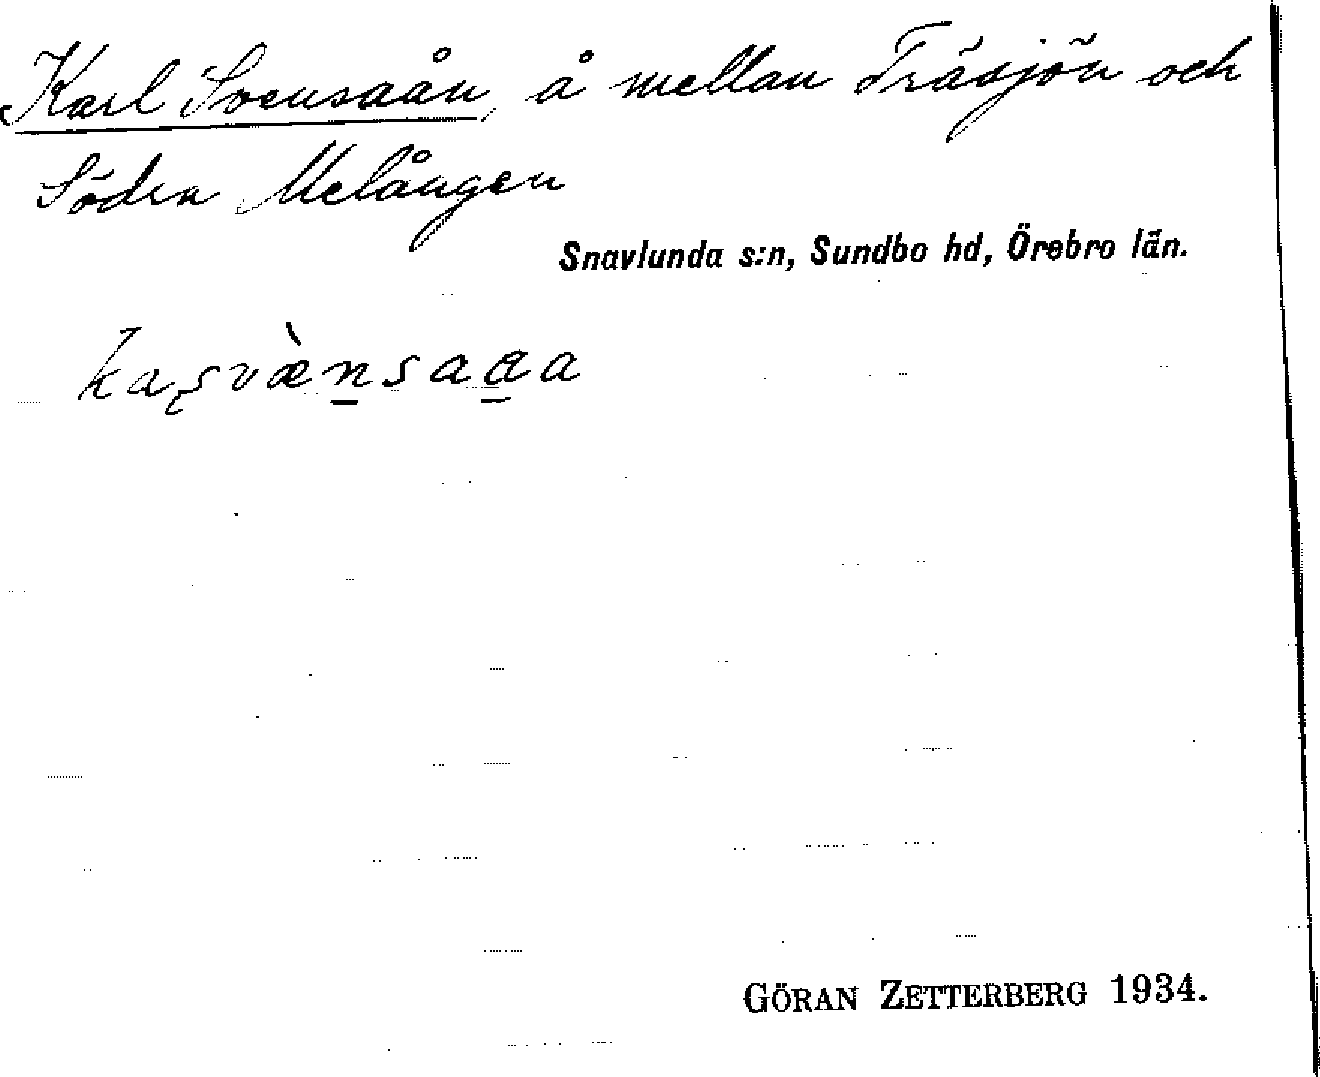 Karl Svensaån, å mellan Träsjön och
Södra Melången
Snavlunda s:n, Sundbo hd, Örebro län.
kaʂvæ̀n̲saa̲a
GÖRAN ZETTERBERG 1934.